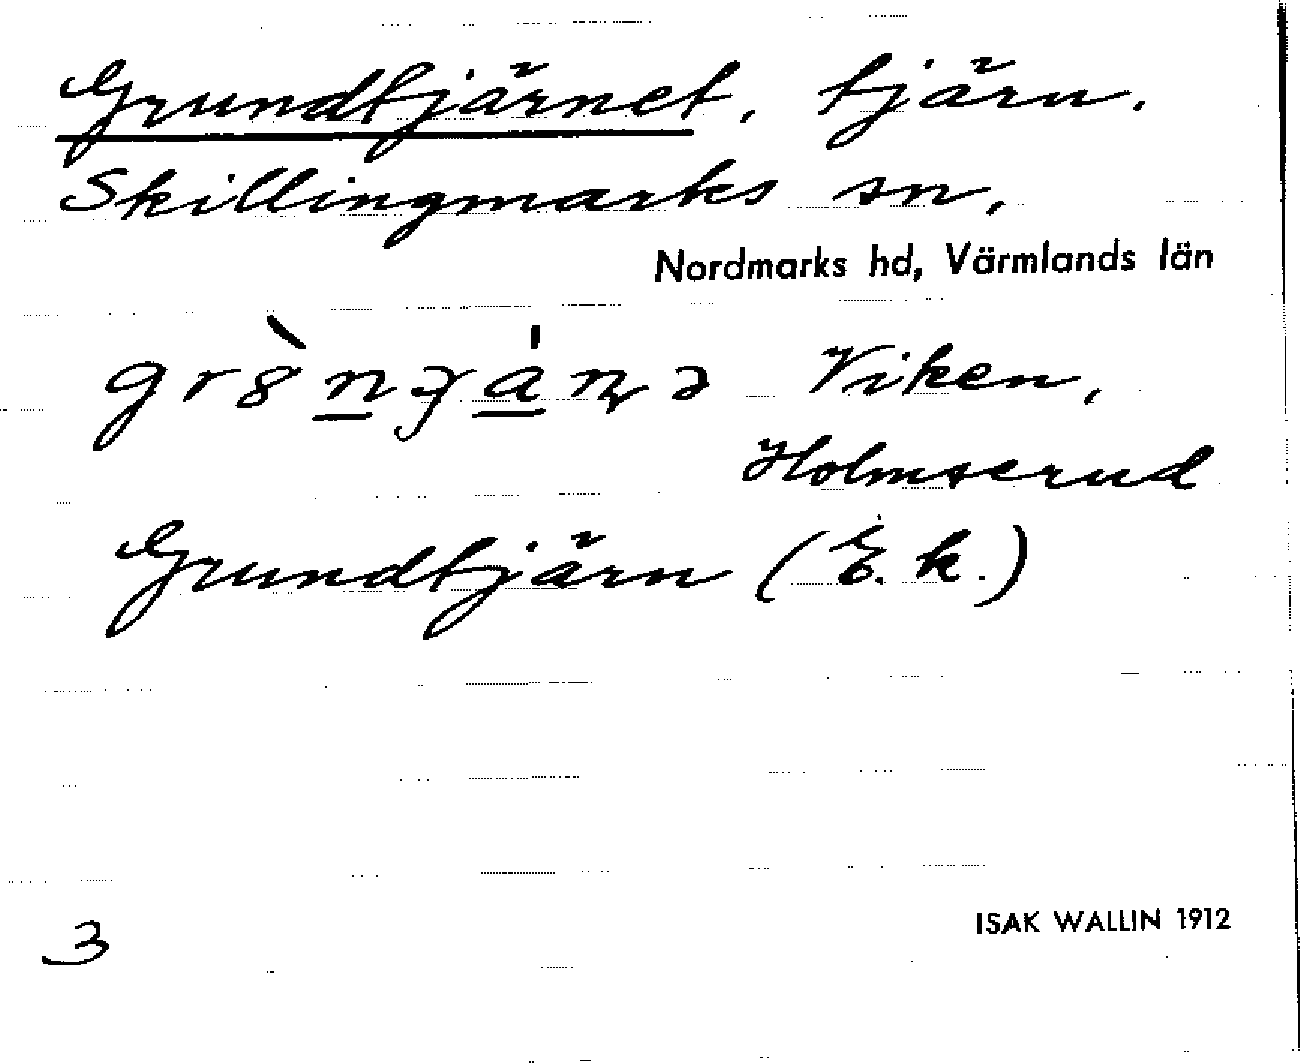 Grundtjärnet, tjärn.
Skillingmarks sn,
Nordmarks hd, Värmlands län
Viken,
Holmserud
Grundtjärn (E.k.)
3
ISAK WALLIN 1912